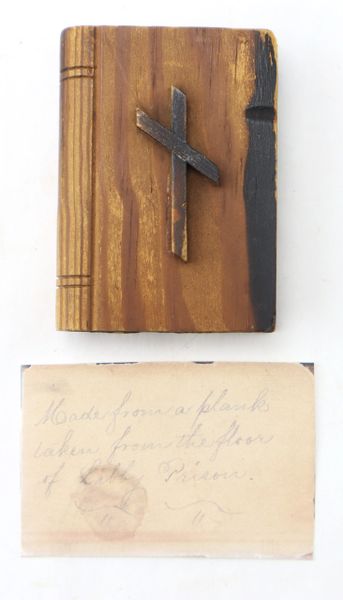 Made from a plank
taken from the floor
of Libby Prison.
" "